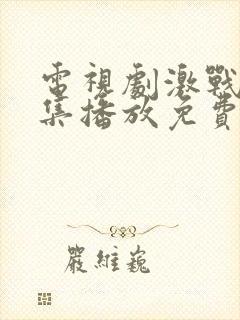 電視劇激戰
集播放免費
嚴維巍